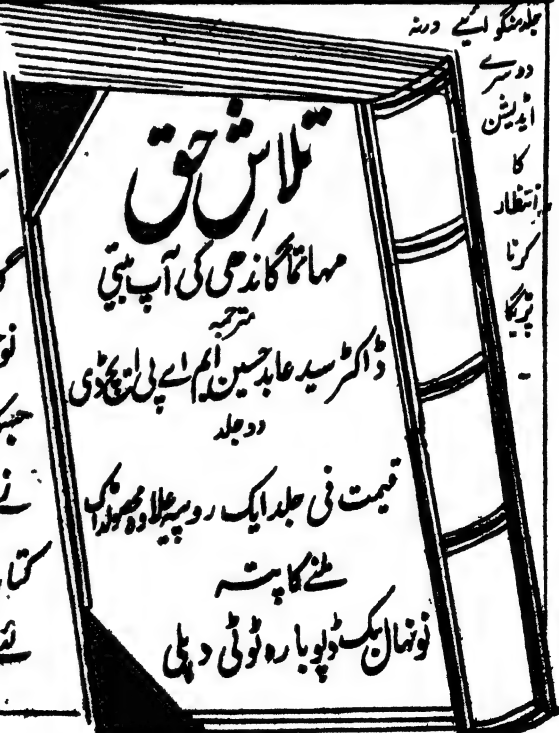 جلد منگوائیے ورنہ
دوسرے
اڈیشن
کا
انتظار
کرنا
پڑیگا
-
تلاشِ حق
مہاتما گاندھی کی آپ بیتی
مترجمہ
ڈاکٹر سید عابد حسین ایم اے پی ایچ ڈی
دو جلد
قیمت فی جلد ایک روپیہ علاوہ محصولڈاک
ملنے کا پتہ
نونہال بک ڈپو بارہ ٹوٹی دہلی